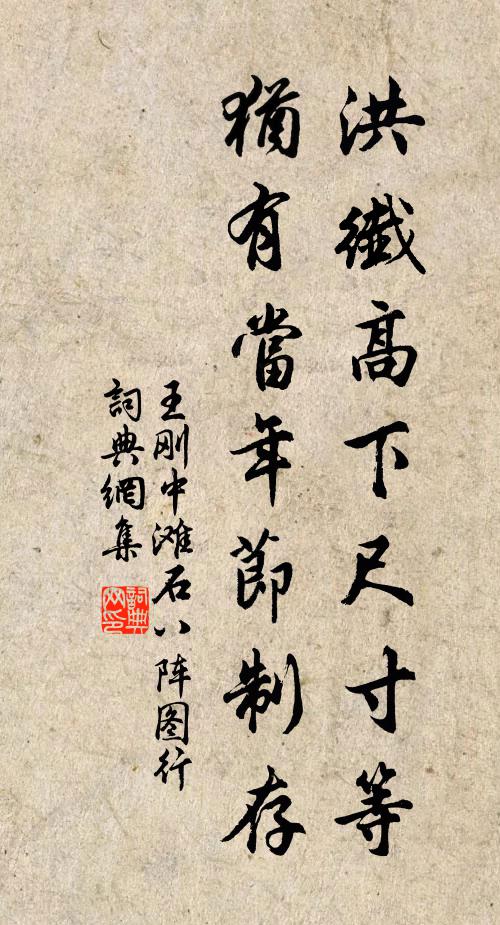 洪纖高下尺寸等
猶有當年節制存
王刚中滩石八阵图行
詞典網集
詞典網印